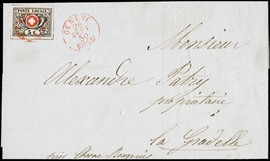 POSTE LOCALE
GENÈVE
Monsieur
Alexandre Patry
propriétaire
à
la Gradelle
près Chêne Bougeries